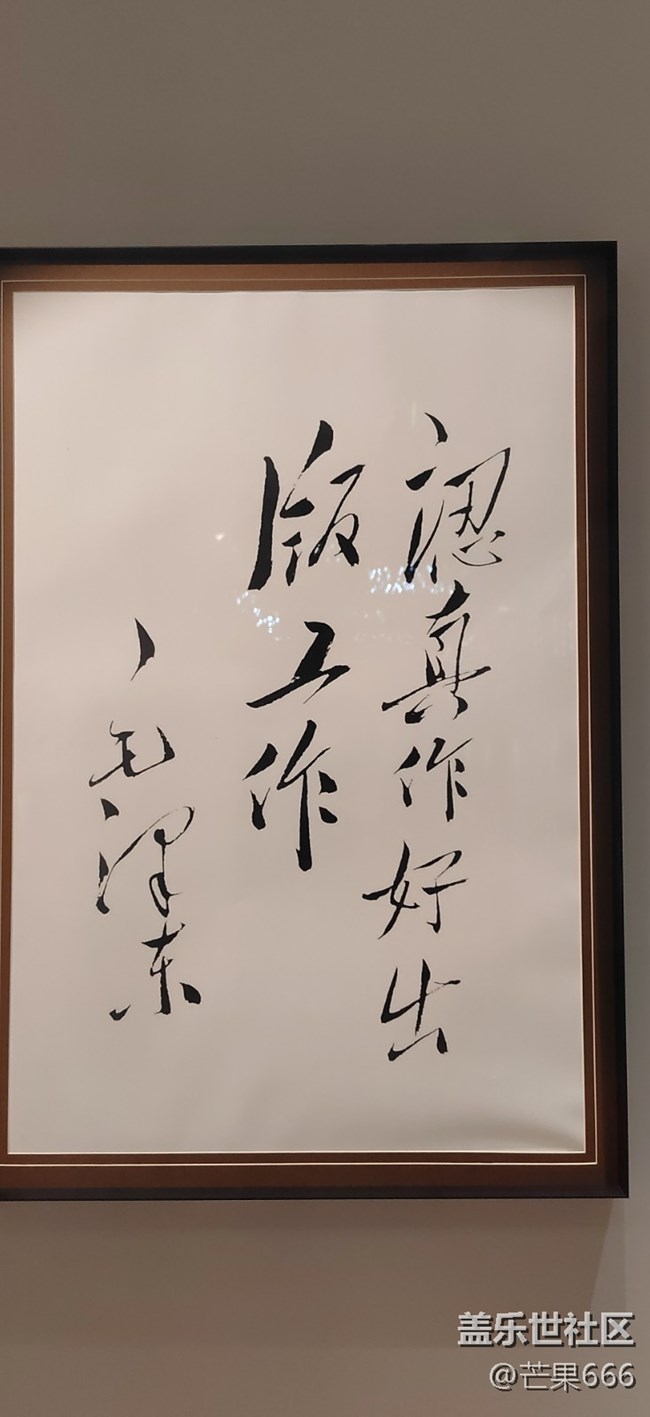 認真作好出
版工作
毛澤东
盖乐世社区
@芒果666